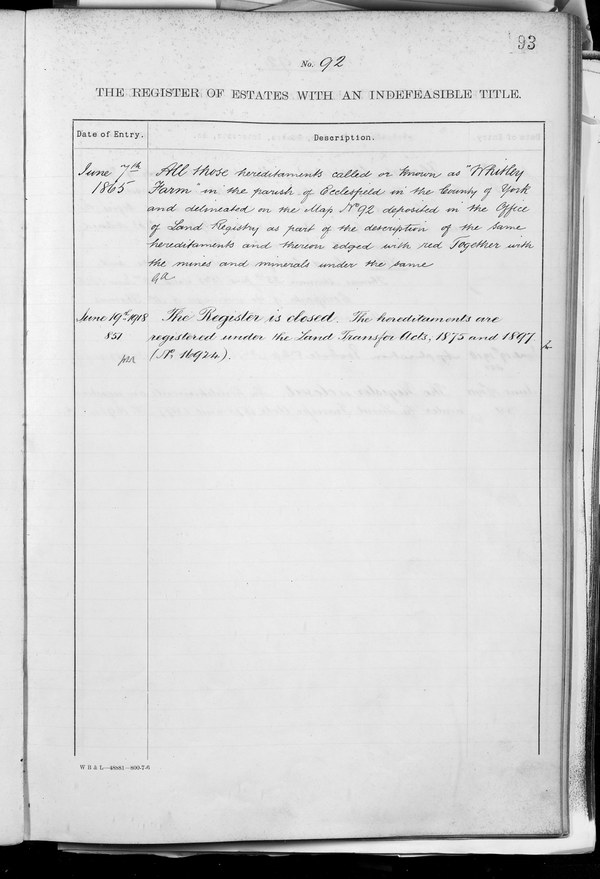 93
No. 92
THE REGISTER OF ESTATES WITH AN INDEFEASIBLE TITLE.
Date of Entry.
Description.
June 7th
1865
All those hereditaments called or known as "Whitley
Farm" in the parish of Ecclesfield in the County of York
and delineated on the Map No 92 deposited in the Office
of Land Registry as part of the description of the same
hereditaments and thereon edged with red Together with
the mines and minerals under the same
June 19th 1918
851
The Register is closed. The hereditaments are
registered under the Land Transfer Acts, 1875 and 1897
(No 16924).
W B & L—48881—800.7.